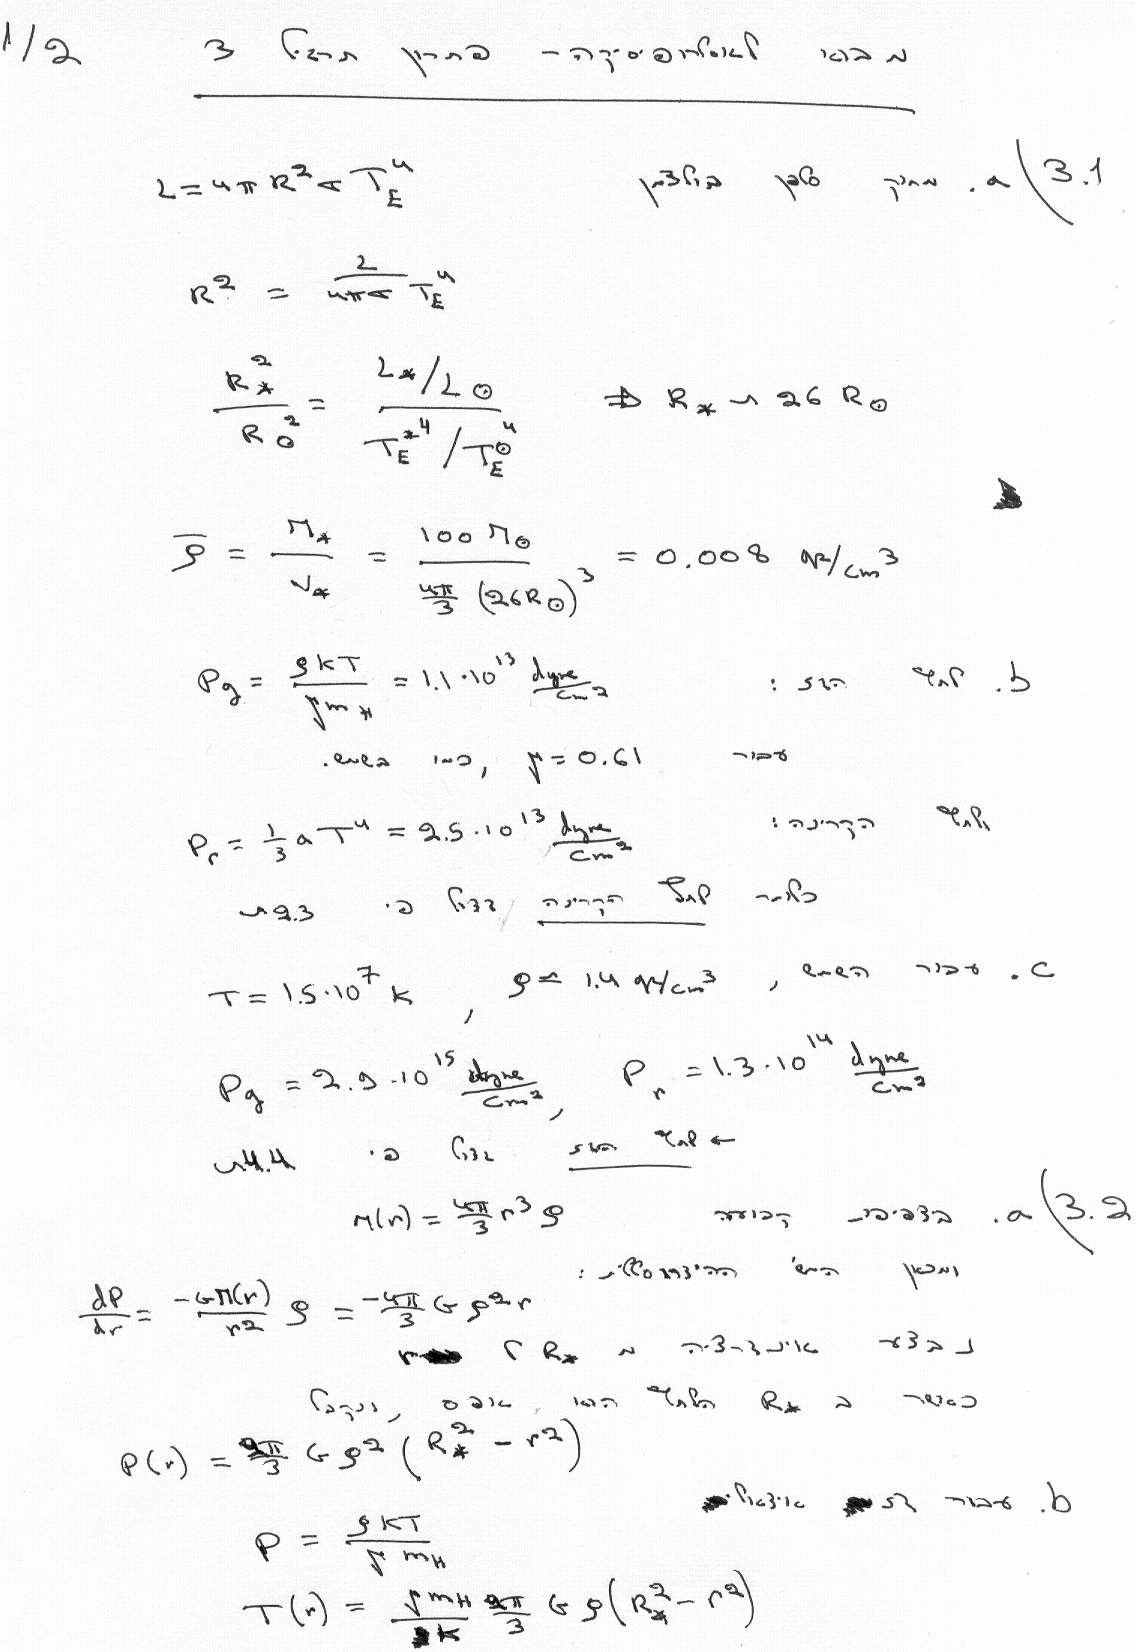 1/2
מבוא לאסטרופיסיקה - פתרון תרגיל 3
3.1) a. מחוק סטפן בולצמן L = 4πR²σT_E⁴
R² = L / 4πσT_E⁴
R_*² / R_⊙² = (L_*/L_⊙) / (T_E^*⁴ / T_E^⊙⁴) ⇒ R_* ~ 26 R_⊙
ρ̄ = M_* / V_* = 100 M_⊙ / (4π/3 (26R_⊙)³) = 0.008 gr/cm³
b. לחץ הגז: P_g = ρkT / μm_H = 1.1·10¹³ dyne/cm²
עבור μ = 0.61, כמו בשמש.
ולחץ הקרינה: P_r = 1/3 aT⁴ = 2.5·10¹³ dyne/cm²
כלומר לחץ הקרינה גדול פי ~2.3
c. עבור השמש, ρ ≃ 1.4 gr/cm³, T = 1.5·10⁷ K
P_g = 2.9·10¹⁵ dyne/cm², P_r = 1.3·10¹⁴ dyne/cm²
← לחץ הגז גדול פי
3.2) a. בצפיפות קבועה M(r) = 4π/3 r³ρ
ומכאן המש' ההידרוסטטית:
dP/dr = -GM(r)/r² ρ = -4π/3 Gρ²r
נבצע אינטגרציה מ R_* ל r
כאשר ב R_* הלחץ הוא אפס, ונקבל
P(r) = 2π/3 Gρ² (R_*² - r²)
b. עבור גז אידאלי
P = ρkT / μm_H
T(r) = μm_H / k 2π/3 Gρ(R_*² - r²)